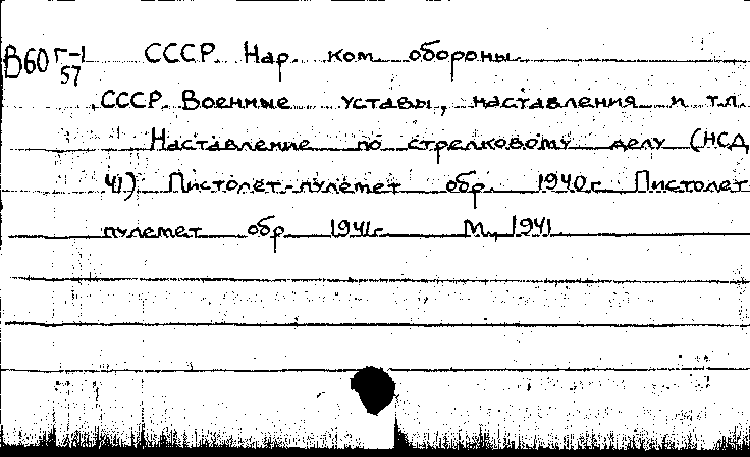 В60 Г-1/57 СССР. Нар. ком. обороны.
СССР. Военные уставы, наставления и т.п.
Наставление по стрелковому делу (НСД
41) Пистолет-пулемет обр. 1940г. Пистолет
пулемет обр 1941г. М., 1941.